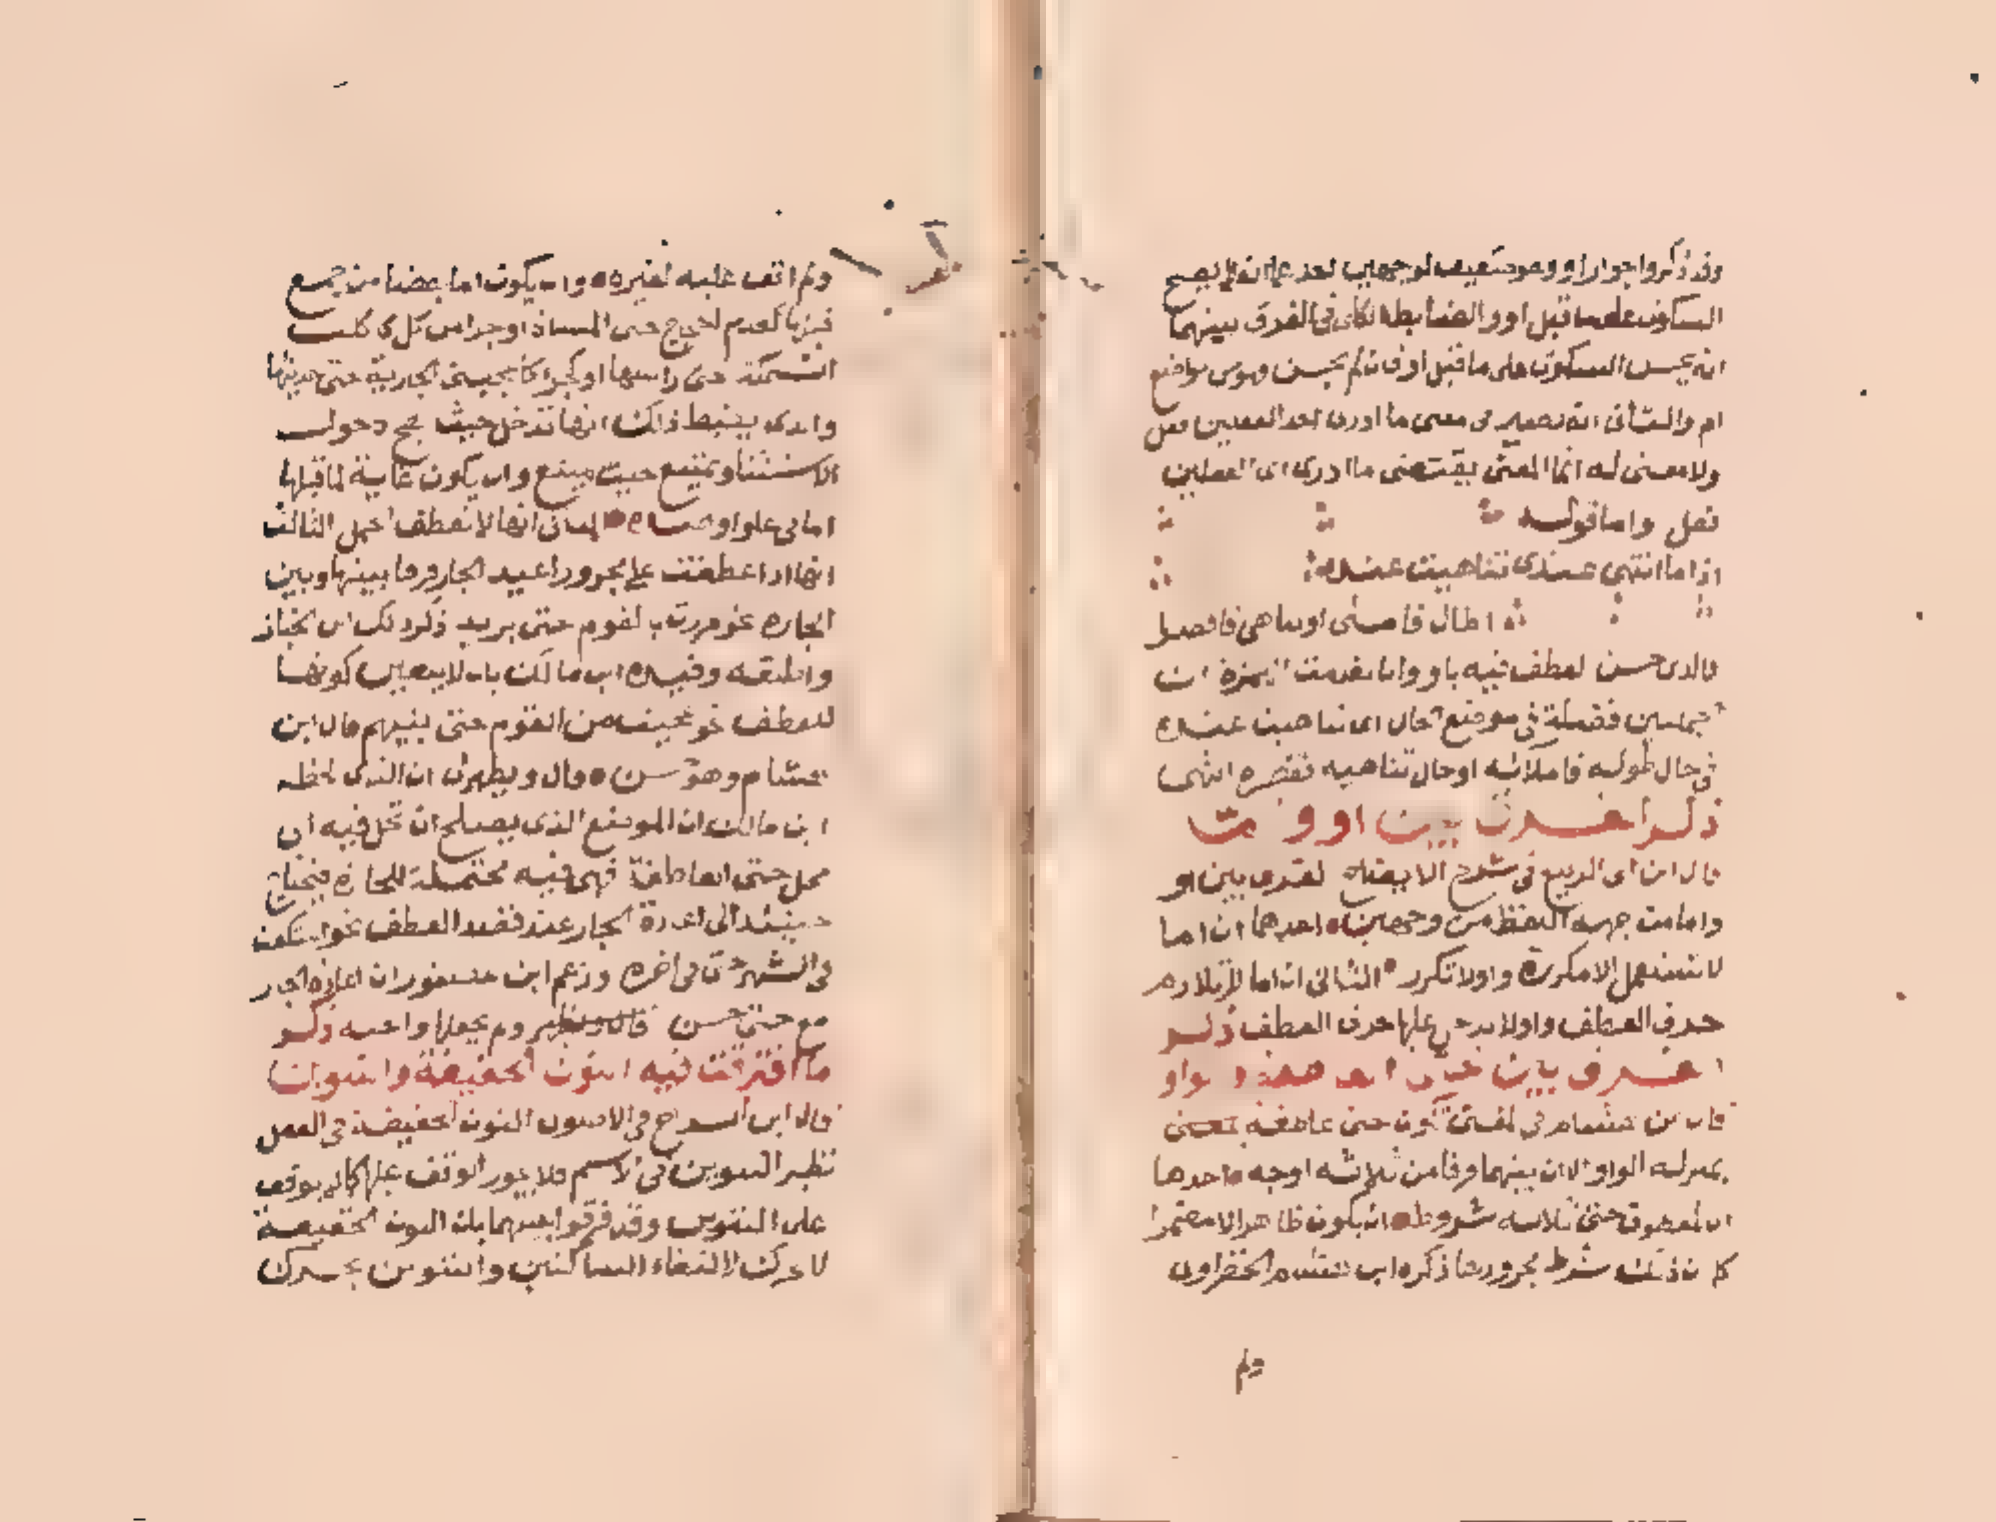 وقد ذكروا جواز او وهو ضعيف لوجهين احدهما انه لا يصح
السكوت على ما قبل او والضابط الكلى فى الفرق بينهما
انه يحسن السكوت على ما قبل او فان لم يحسن فهو من مواضع
ام والثانى انه يصير فى معنى ما ادرى احد الفعلين فعل
ولا معنى له انما المعنى يقتضى ما ادرى اى الفعلين
فعل واما قوله
اذا ما انتهى عندى تناهيت عنده
اطال فاملى او تناهى فاقصرا
فالذى حسن العطف فيه باو وان تقدمت الهمزة ان
الجملتين فضلة فى موضع الحال اى تناهيت عنده
فى حال طوله فاملائه او حال تناهيه فقصره انتهى
ذكر الفرق بين او و
قال ابن ابى الربيع فى شرح الايضاح الفرق بين او
واما من جهة اللفظ من وجهين احدهما ان اما
لا تستعمل الا مكررة واو لا تكرر الثانى ان اما لا تلازم
حرف العطف واو لا يدخل عليها حرف العطف ذكر
الفرق بين حتى العاطفة والواو
قال ابن هشام فى المغنى تكون حتى عاطفة بمعنى
بمنزلة الواو الا ان بينهما فرقا من ثلاثة اوجه احدها
ان لمعطوف حتى ثلاثة شروط ان يكون ظاهرا لا مضمرا
كما ان ذلك شرط مجرورها ذكره ابن هشام الخضراوى
ولم
ولم اقف عليه لغيره وان يكون اما بعضا من جمع
قبلها كقدم الحجاج حتى المشاة او جزا من كل كاكلت
السمكة حتى راسها او كجزء كاعجبتنى الجارية حتى حديثها
والذى يضبط ذلك انها تدخل حيث يصح دخول
الاستثنا وتمتنع حيث يمتنع وان يكون غاية لما قبلها
اما فى علو او ضده الثانى انها لا تعطف الجمل الثالث
انها اذا عطفت على مجرور اعيد الجار فرقا بينها وبين
الجاره نحو مررت بالقوم حتى بزيد ذكر ذلك ابن الخباز
واطلقه وقيده ابن مالك بان لا يتعين كونها
للعطف نحو عجبت من القوم حتى بنيهم قال ابن
هشام وهو حسن قال ويظهر لى ان الذى لحظه
ابن مالك ان الموضع الذى يصلح ان تحل فيه الى
محل حتى العاطفة فهى فيه محتملة للجارة فيحتاج
حينئذ الى اعادة الجار عند قصد العطف نحو اعتكفت
فى الشهر حتى فى اخره وزعم ابن عصفور ان اعادة الجار
مع حتى حسن ولم يجعلها واجبه ذكر
ما افترقت فيه النون الخفيفة والتنوين
قال ابن السراج فى الاصول النون الخفيفة فى الفعل
نظير التنوين فى الاسم فلا يجوز الوقف عليها كما لا يوقف
على التنوين وقد فرقوا بينهما بان النون الخفيفة
لا تحرك لالتقاء الساكنين والتنوين يحرك